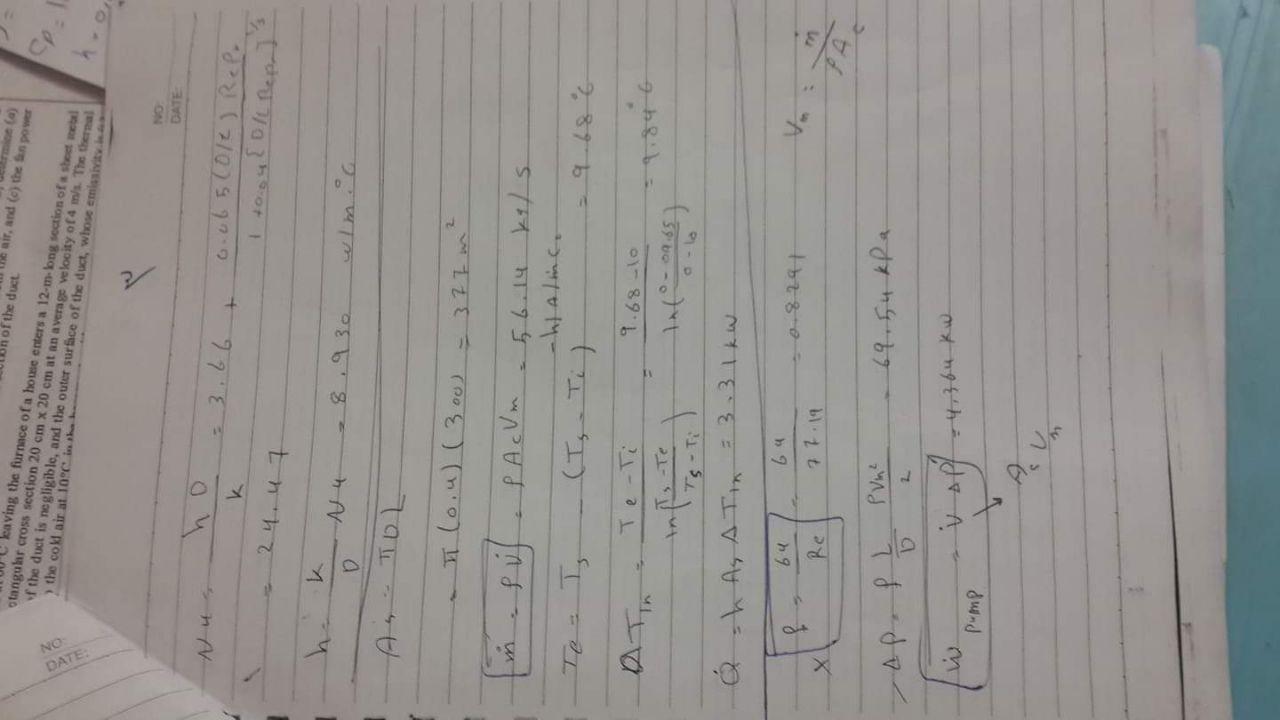 ction of the duct.
the air, and (c) the fan power
determine (a)
leaving the furnace of a house enters a 12-m-long section of a sheet metal
ctangular cross section 20 cm x 20 cm at an average velocity of 4 m/s. The thermal
of the duct is negligible, and the outer surface of the duct, whose emissivity is
the cold air at 10°C in the
Cp =
h = 0,
NO:
DATE:
NO:
DATE:
Nu = hD / k = 3.66 + 0.065 (D/L) Re Pr / 1 + 0.04 [D/L Re Pr]^2/3
= 24.47
h = k / D Nu = 8.930 w/m.°C
As = πDL
= π (0.4) (300) = 377 m²
ṁ = ρV̇ = ρAcVm = 56.14 kg/s
Te = Ts - (Ts - Ti) -h/A/ṁCp = 9.68°C
ΔTln = Te - Ti / ln(Ts - Te / Ts - Ti) = 9.68 - 10 / ln(0 - 09.65 / 0 - 10) = 9.84°C
Q̇ = h As ΔTln = 3.31 kw
x f = 64 / Re = 64 / 77.19 = 0.8291
Vm : ṁ / ρAc
ΔP = f L / D ρVm² / 2 = 69.54 kPa
ẇ pump = V̇ ΔP = 4,364 kw